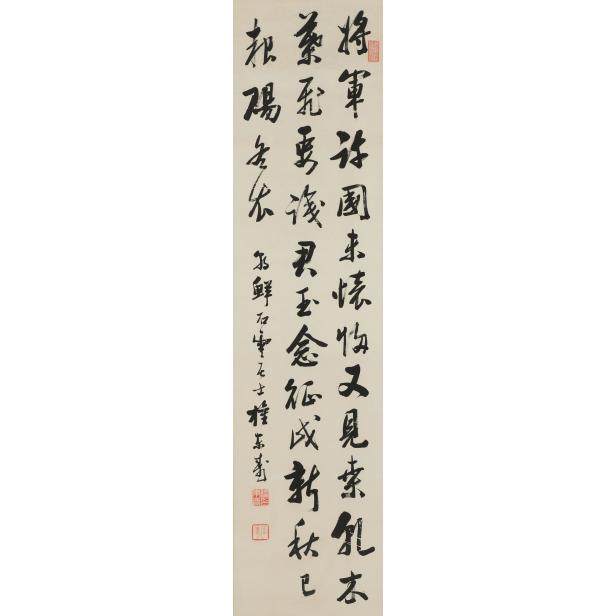 將軍許國未懷歸又見桑乾木
葉飛要識君王念征戍新秋已
報賜冬衣
朝鮮石雲居士權東壽